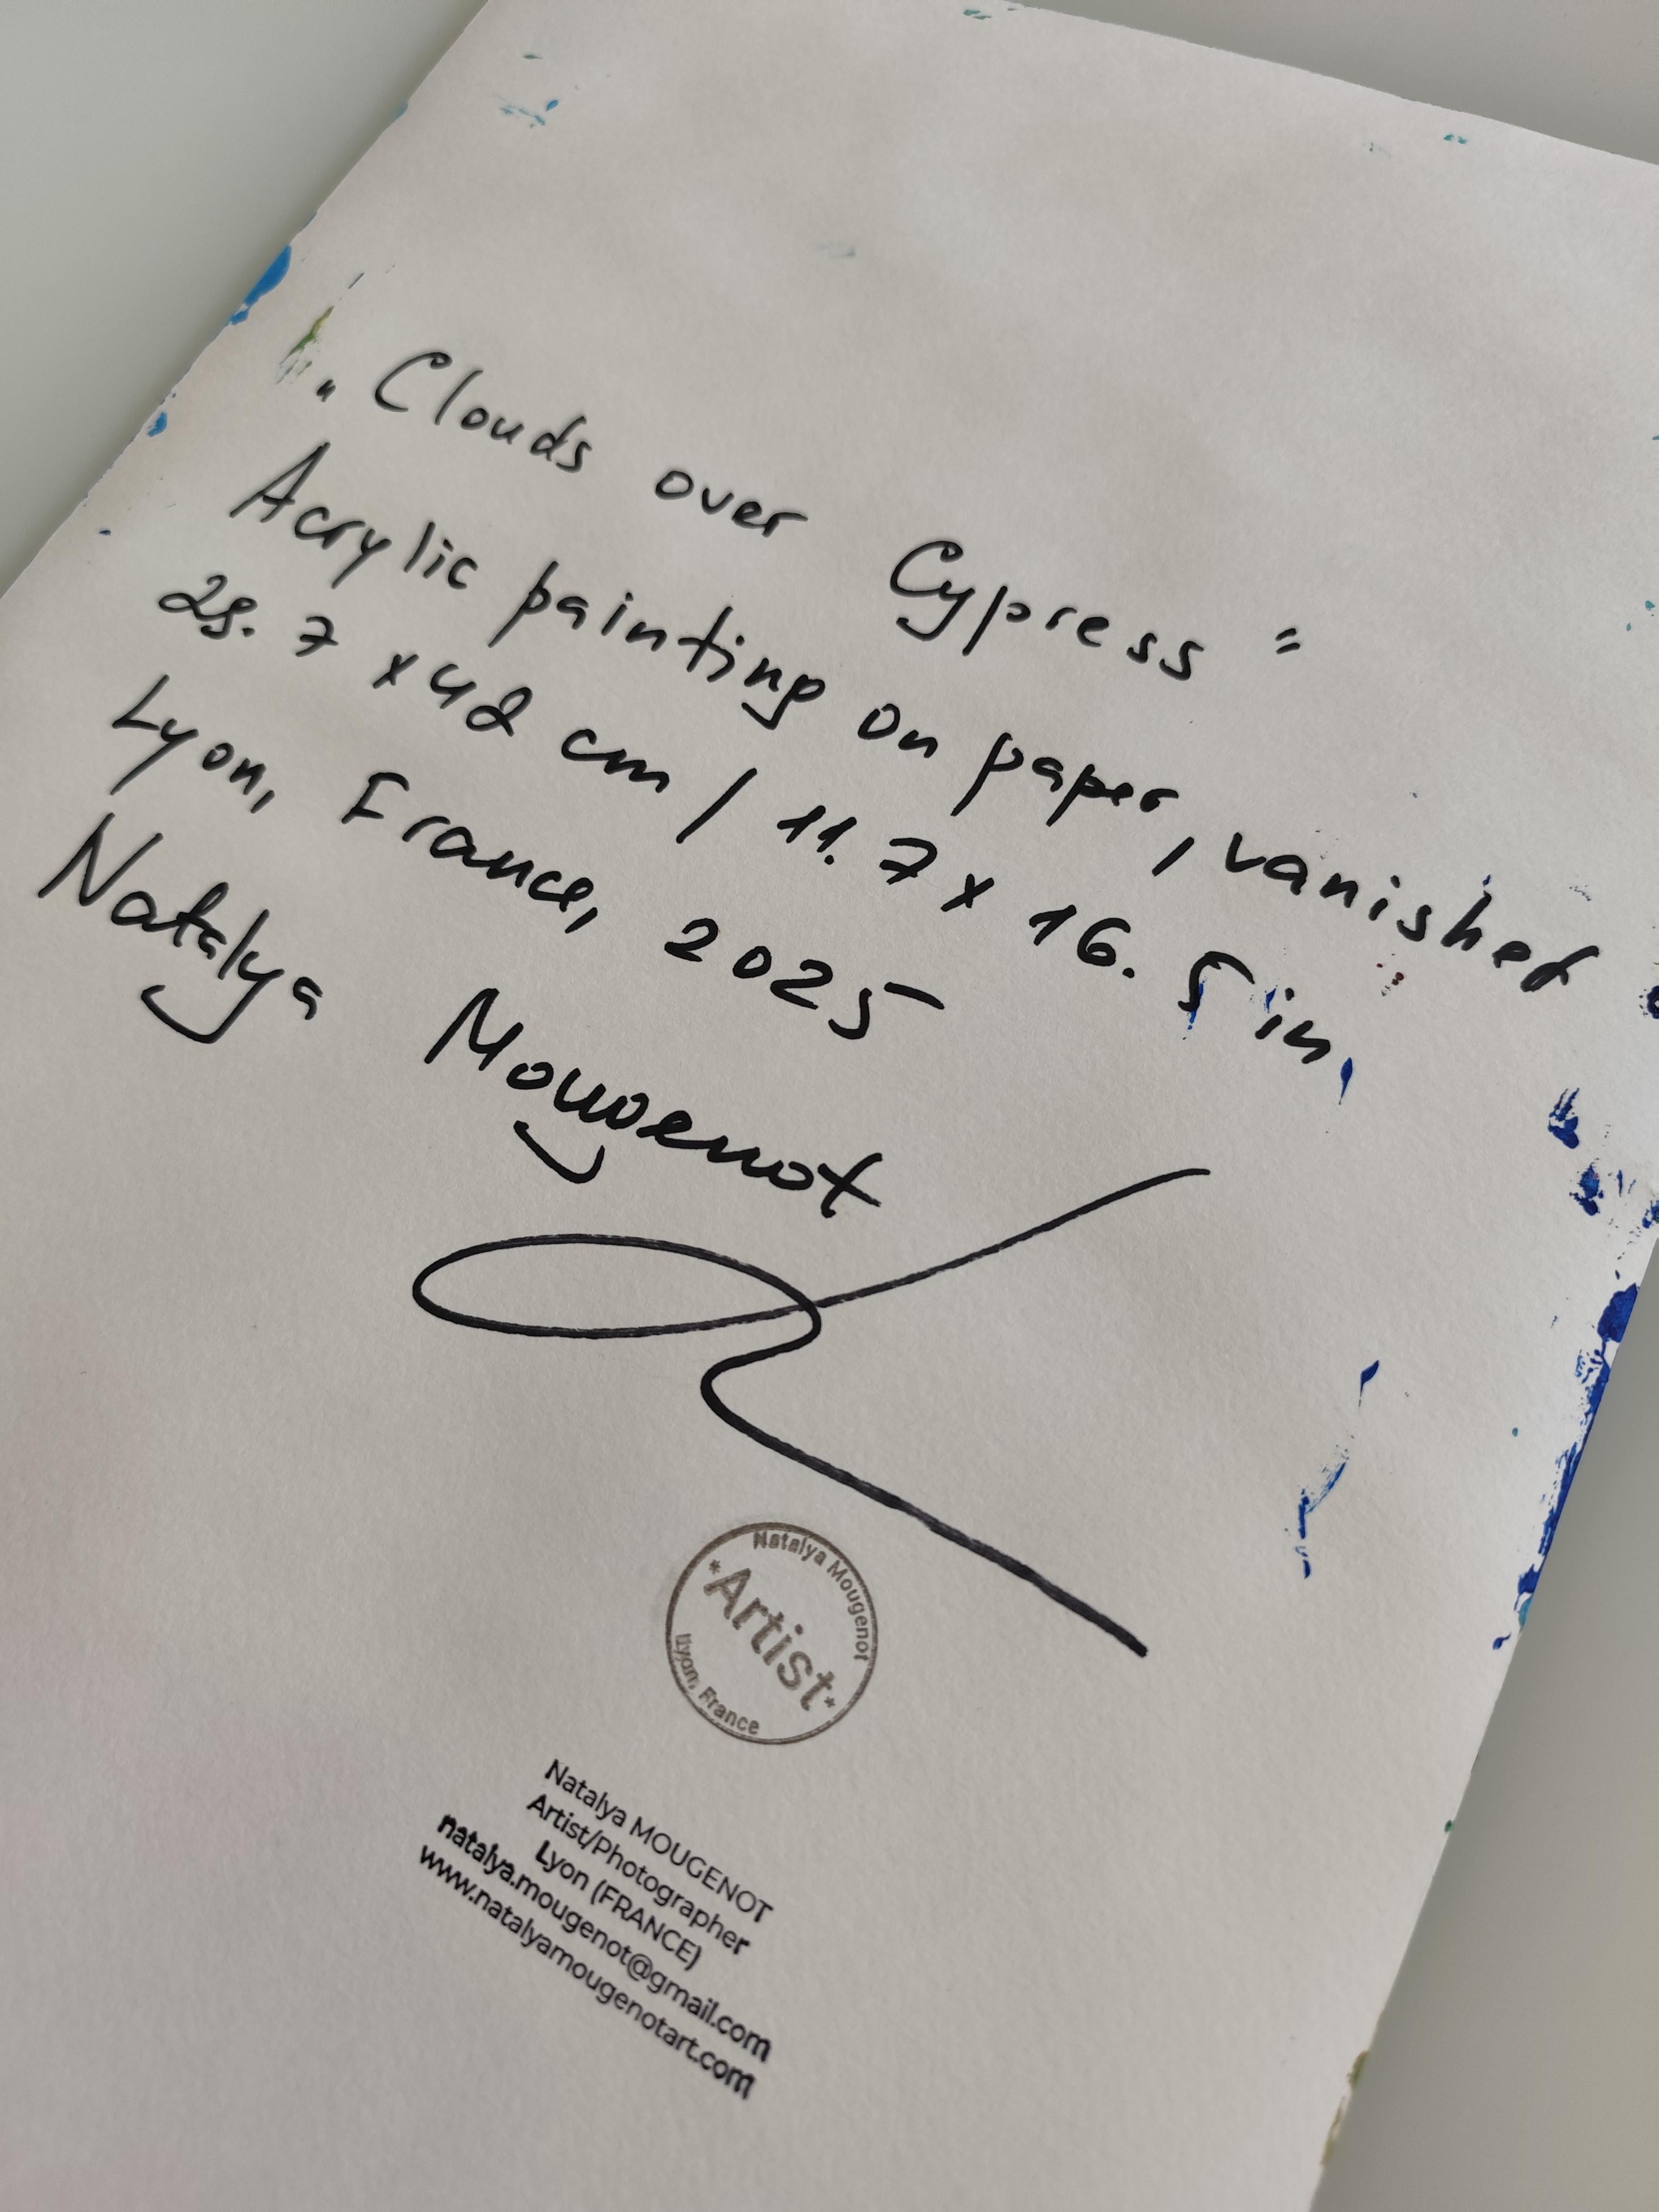 „Clouds over Cypress"
Acrylic painting on paper, vanished
29.7 x 42 cm / 11.7 x 16.5 in,
Lyon, France, 2025
Natalya Mougenot
Natalya Mougenot
*Artist*
Lyon, France
Natalya MOUGENOT
Artist/Photographer
Lyon (FRANCE)
natalya.mougenot@gmail.com
www.natalyamougenotart.com